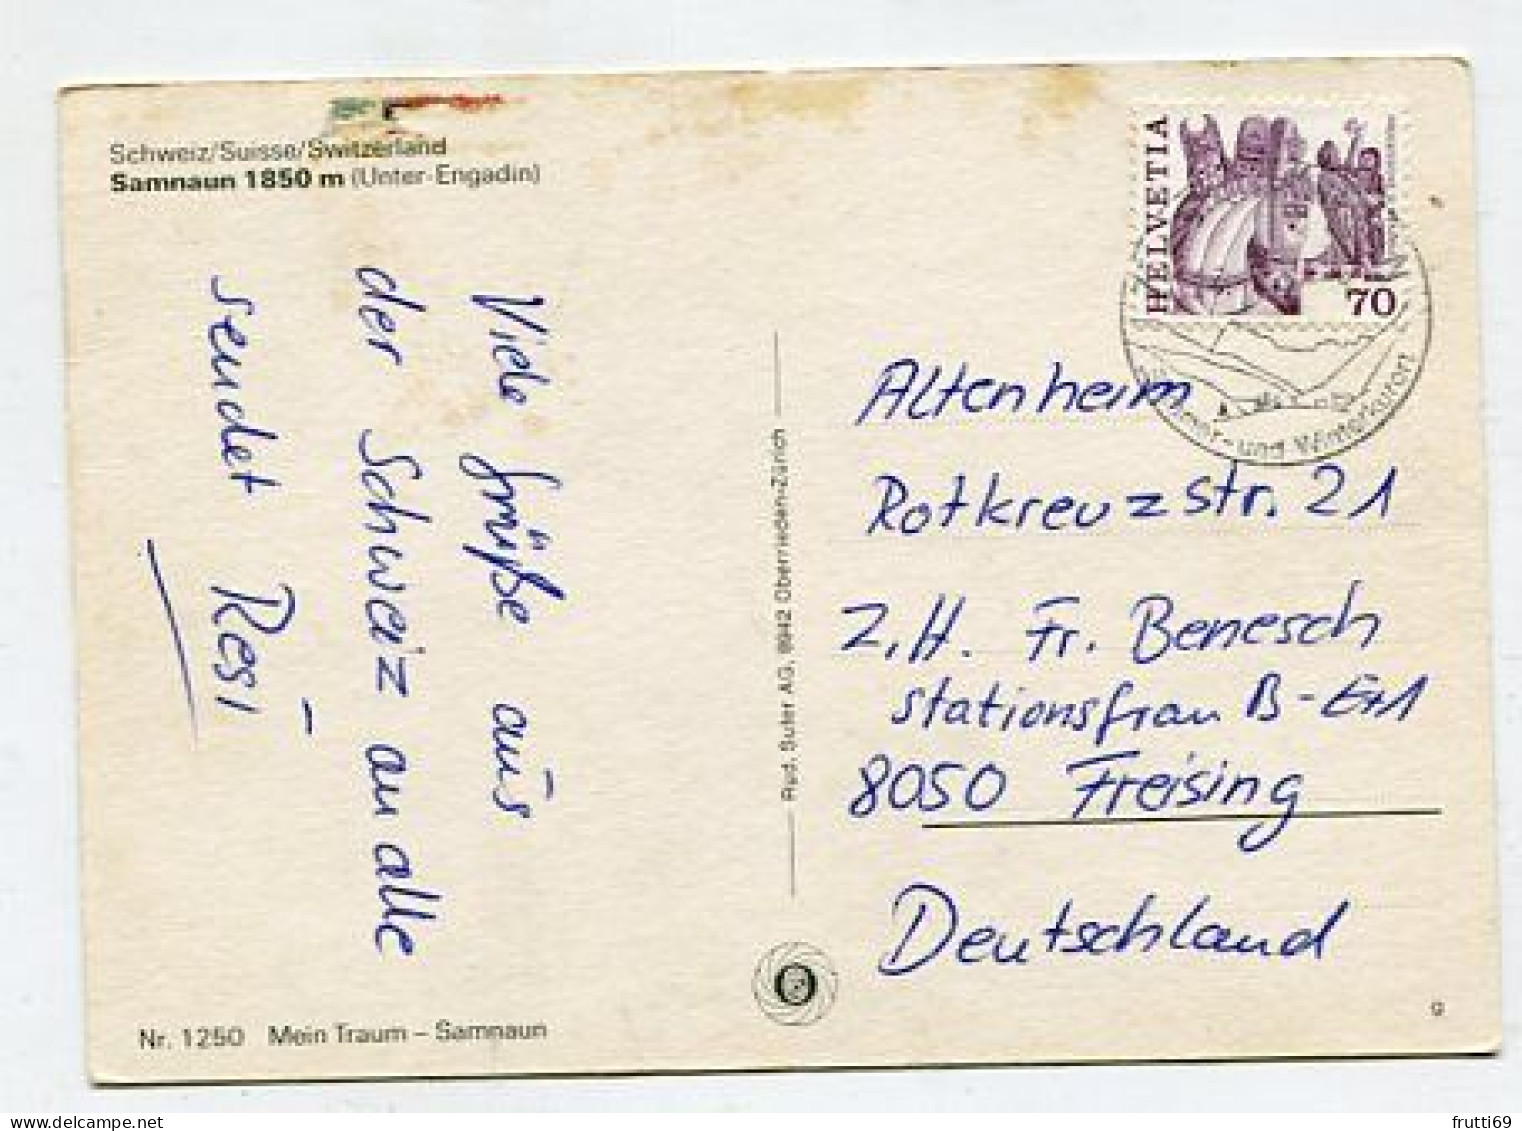 Schweiz/Suisse/Switzerland
Samnaun 1850 m (Unter-Engadin)
Viele Grüße aus
der Schweiz an alle
sendet Resi
Nr. 1250 Mein Traum – Samnaun
Rud. Suter AG, 8942 Oberrieden-Zürich
HELVETIA
70
und Winterkurort
Altenheim
Rotkreuzstr. 21
z.H. Fr. Benesch
Stationsfrau B-
8050 Freising
Deutschland
g
frutti69